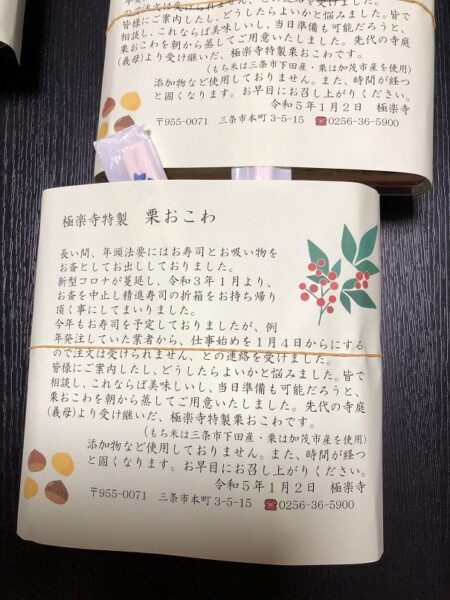 年発注していた業者から、仕事始めを1月4日からにする
ので注文は受けられません、との連絡を受けました。
皆様にご案内したし、どうしたらよいかと悩みました。皆で
相談し、これならば美味しいし、当日準備も可能だろうと、
栗おこわを朝から蒸してご用意いたしました。先代の寺庭
(義母)より受け継いだ、極楽寺特製栗おこわです。
(もち米は三条市下田産・栗は加茂市産を使用)
添加物など使用しておりません。また、時間が経つ
と固くなります。お早目にお召し上がりください。
令和5年1月2日 極楽寺
〒955-0071 三条市本町3-5-15 ☎0256-36-5900
極楽寺特製 栗おこわ
長い間、年頭法要にはお寿司とお吸い物を
お斎としてお出ししておりました。
新型コロナが蔓延し、令和3年1月より、
お斎を中止し精進寿司の折箱をお持ち帰り
頂く事にしてまいりました。
今年もお寿司を予定しておりましたが、例
年発注していた業者から、仕事始めを1月4日からにする
ので注文は受けられません、との連絡を受けました。
皆様にご案内したし、どうしたらよいかと悩みました。皆で
相談し、これならば美味しいし、当日準備も可能だろうと、
栗おこわを朝から蒸してご用意いたしました。先代の寺庭
(義母)より受け継いだ、極楽寺特製栗おこわです。
(もち米は三条市下田産・栗は加茂市産を使用)
添加物など使用しておりません。また、時間が経つ
と固くなります。お早目にお召し上がりください。
令和5年1月2日 極楽寺
〒955-0071 三条市本町3-5-15 ☎0256-36-5900